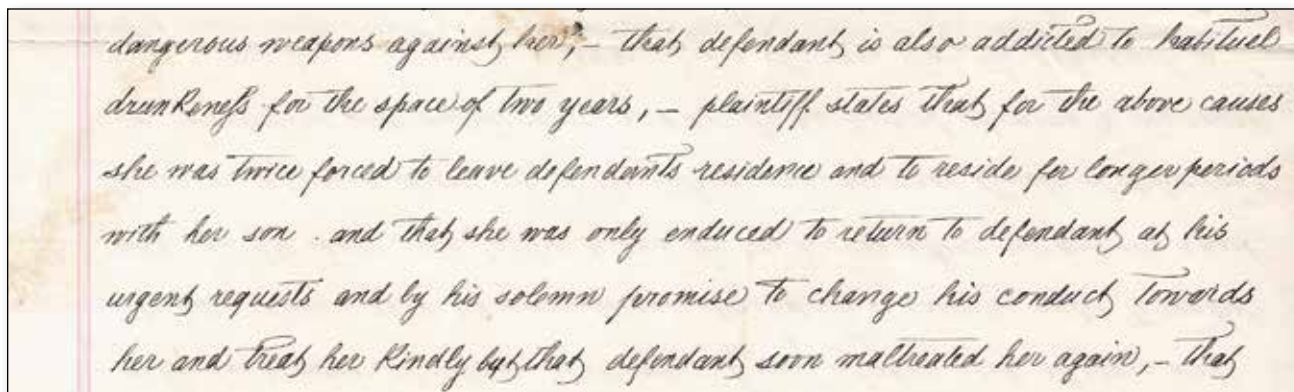 dangerous weapons against her, – that defendant is also addicted to habituel
drunkeness for the space of two years, – plaintiff states that for the above causes
she was twice forced to leave defendants residence and to reside for longer periods
with her son . and that she was only enduced to return to defendant at his
urgent requests and by his solemn promise to change his conduct towards
her and treat her kindly but that defendant soon maltreated her again, – that